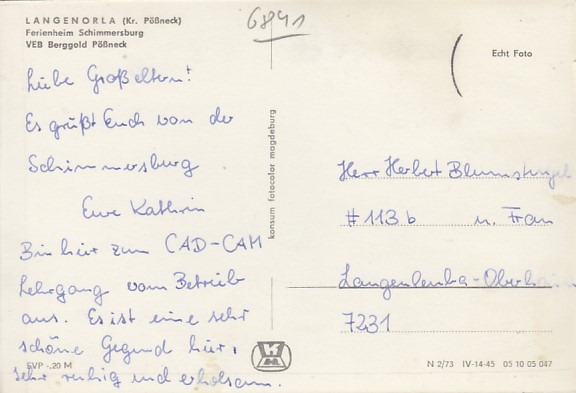 LANGENORLA (Kr. Pößneck)
Ferienheim Schimmersburg
VEB Berggold Pößneck
6841
Echt Foto
Liebe Großeltern!
Es grüßt Euch von der
Schimmersburg
Eure Kathrin
Bin hier zum CAD-CAM
Lehrgang vom Betrieb
aus. Es ist eine sehr
schöne Gegend hier,
sehr ruhig und erholsam.
EVP -,20 M
konsum fotocolor magdeburg
Herr Herbert
# 113 b u. Frau
Langenleuba-Oberhain
7231
N 2/73 IV-14-45 05 10 05 047